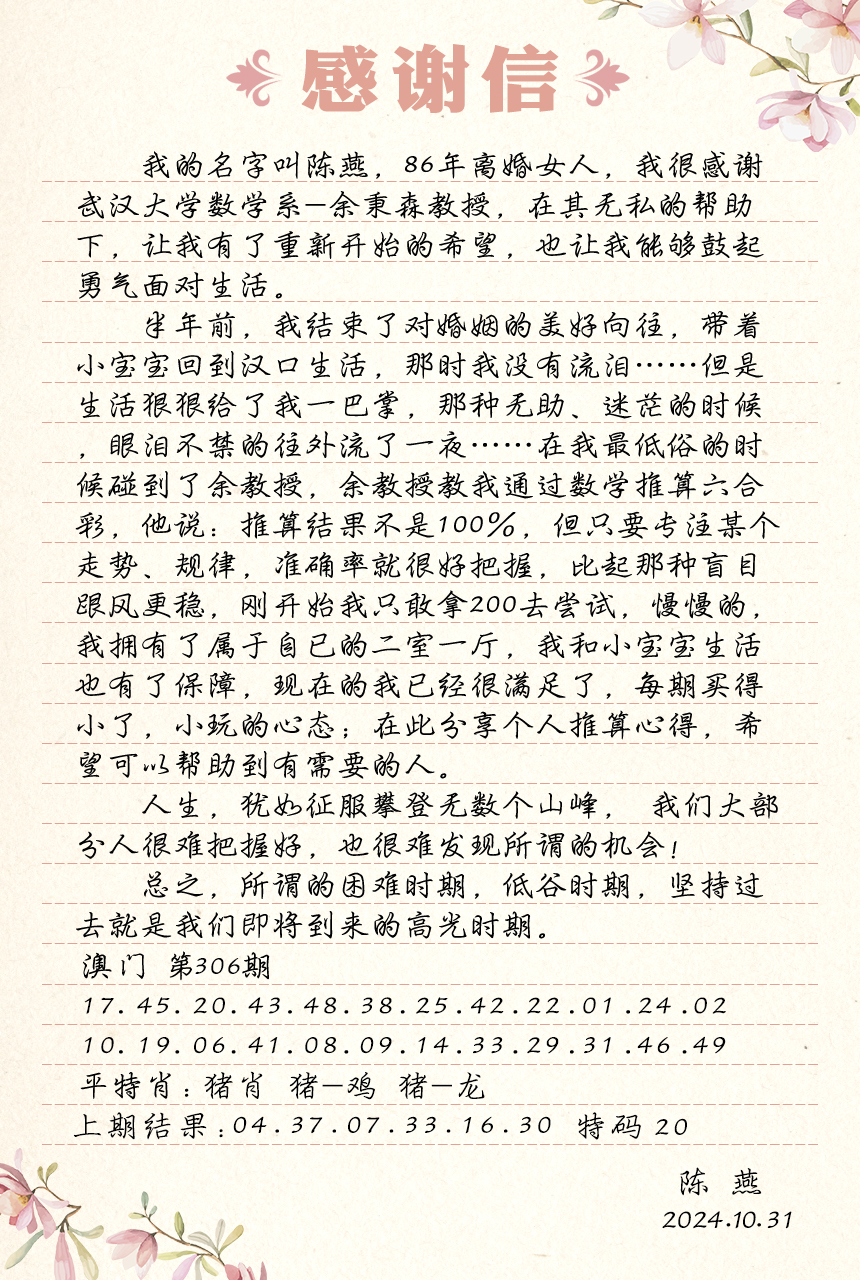 感谢信
我的名字叫陈燕，86年离婚女人，我很感谢
武汉大学数学系—余秉森教授，在其无私的帮助
下，让我有了重新开始的希望，也让我能够鼓起
勇气面对生活。
半年前，我结束了对婚姻的美好向往，带着
小宝宝回到汉口生活，那时我没有流泪……但是
生活狠狠给了我一巴掌，那种无助、迷茫的时候
，眼泪不禁的往外流了一夜……在我最低俗的时
候碰到了余教授，余教授教我通过数学推算六合
彩，他说：推算结果不是100%，但只要专注某个
走势、规律，准确率就很好把握，比起那种盲目
跟风更稳，刚开始我只敢拿200去尝试，慢慢的，
我拥有了属于自已的二室一厅，我和小宝宝生活
也有了保障，现在的我已经很满足了，每期买得
小了，小玩的心态；在此分享个人推算心得，希
望可以帮助到有需要的人。
人生，犹如征服攀登无数个山峰， 我们大部
分人很难把握好，也很难发现所谓的机会！
总之，所谓的困难时期，低谷时期，坚持过
去就是我们即将到来的高光时期。
澳门 第306期
17.45.20.43.48.38.25.42.22.01.24.02
10.19.06.41.08.09.14.33.29.31.46.49
平特肖：猪肖 猪—鸡 猪—龙
上期结果：04.37.07.33.16.30 特码 20
陈 燕
2024.10.31